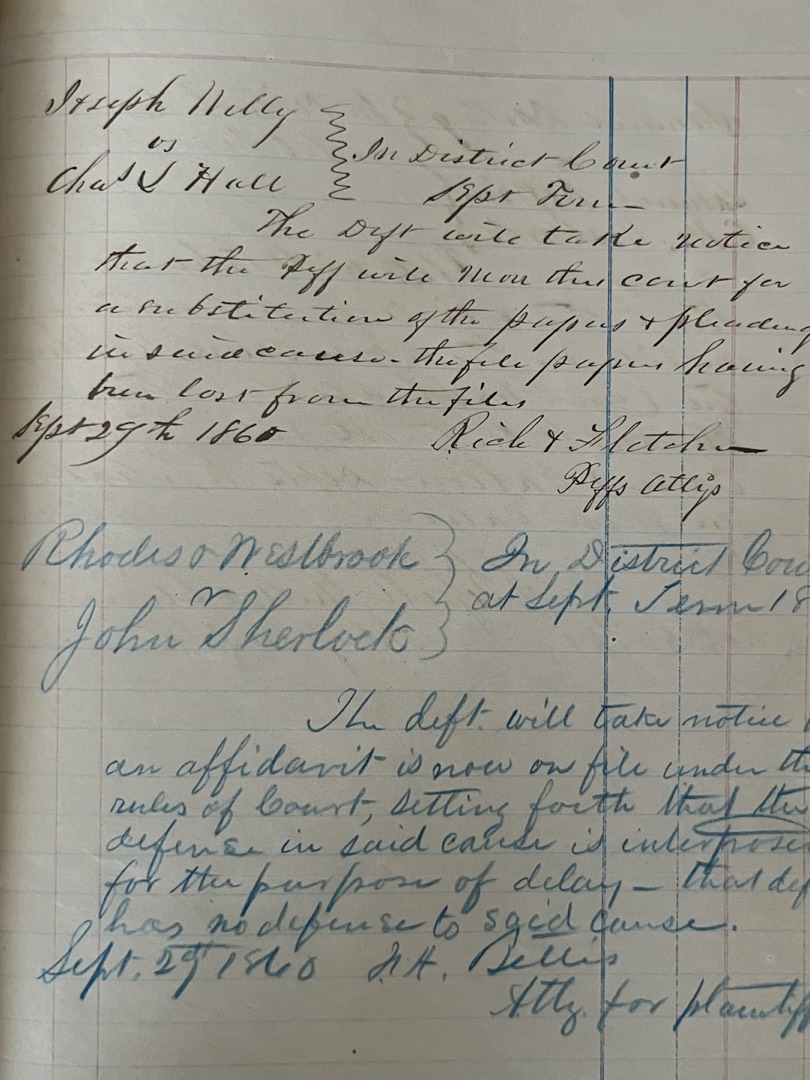 Joseph Nelly
vs
Chas S Hall
In District Court
Sept Term
The Deft will take notice
that the Plff will Move the court for
a substitution of the papers & pleading
in said cause - the file papers having
been lost from the files
Sept 29th 1860 Rich & Fletcher
Plffs Attys
Rhodes & Westbrook
v
John Sherlock
In District Cou
at Sept. Term 18
The deft. will take notice
an affidavit is now on file under the
rules of Court, setting forth that the
defense in said cause is interpose
for the purpose of delay - that def
has no defense to said cause.
Sept. 29 1860 Bellis
Atty. for plaintiff